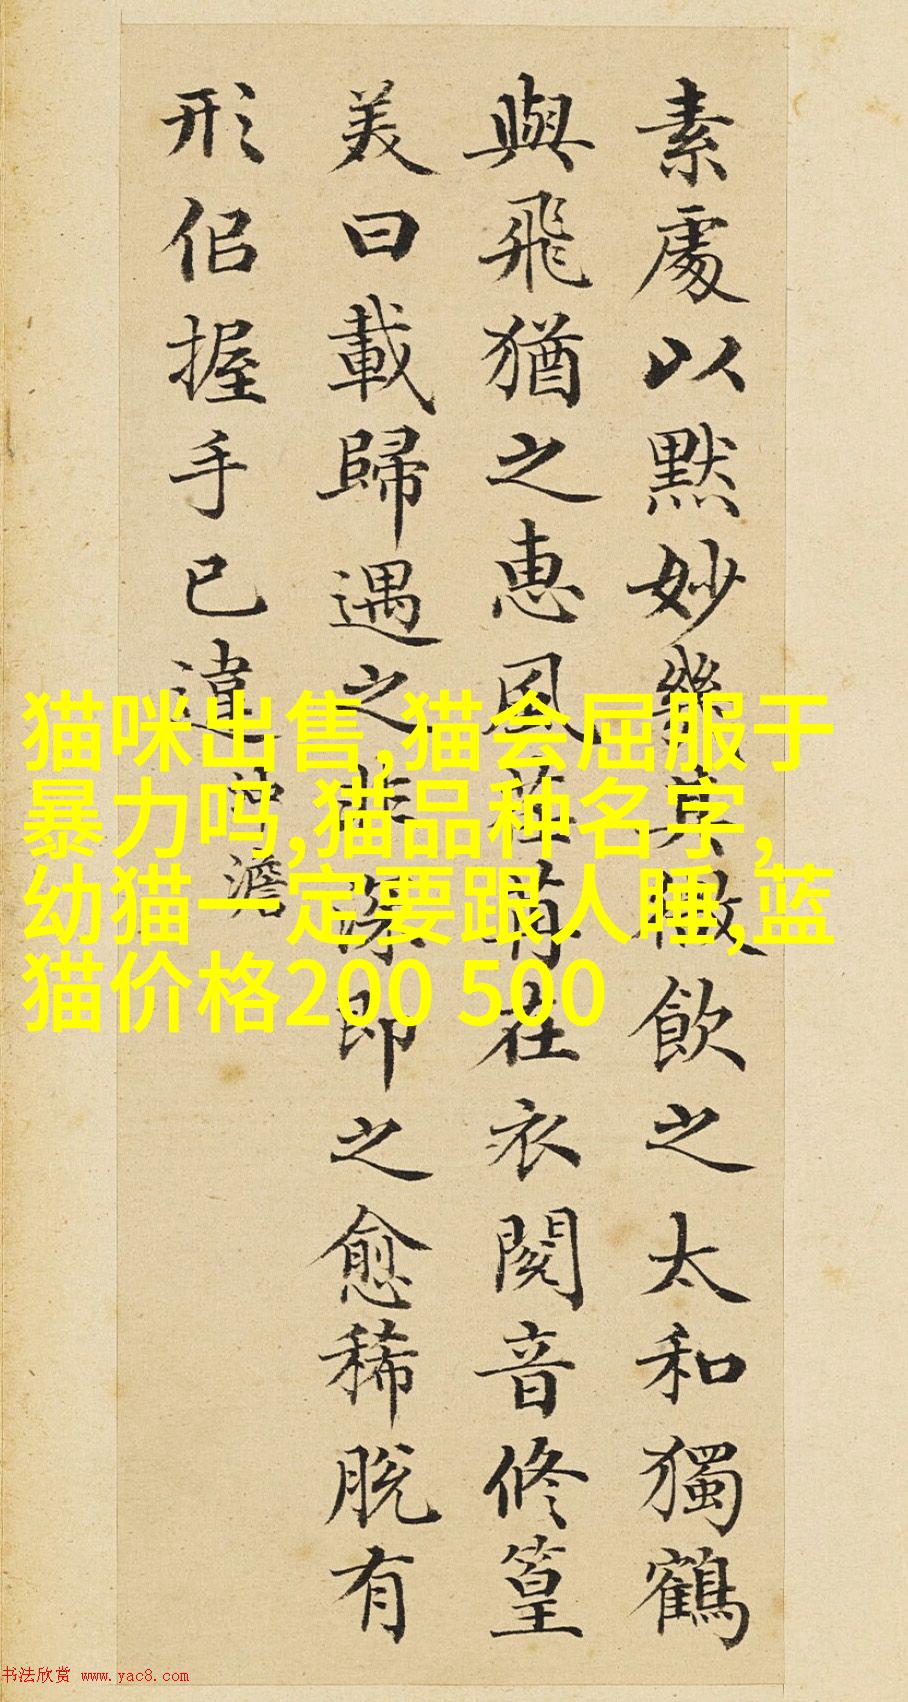 素處以默妙機其微飲之太和獨鶴
與飛猶之惠風荏苒在衣閱音修篁
美曰載歸遇之非深即之愈稀脫有
形侣握手已違
沖澹
猫咪出售,猫会屈服于
暴力吗,猫品种名字,
幼猫一定要跟人睡,蓝
猫价格200 500
书法欣赏 www.yac8.com